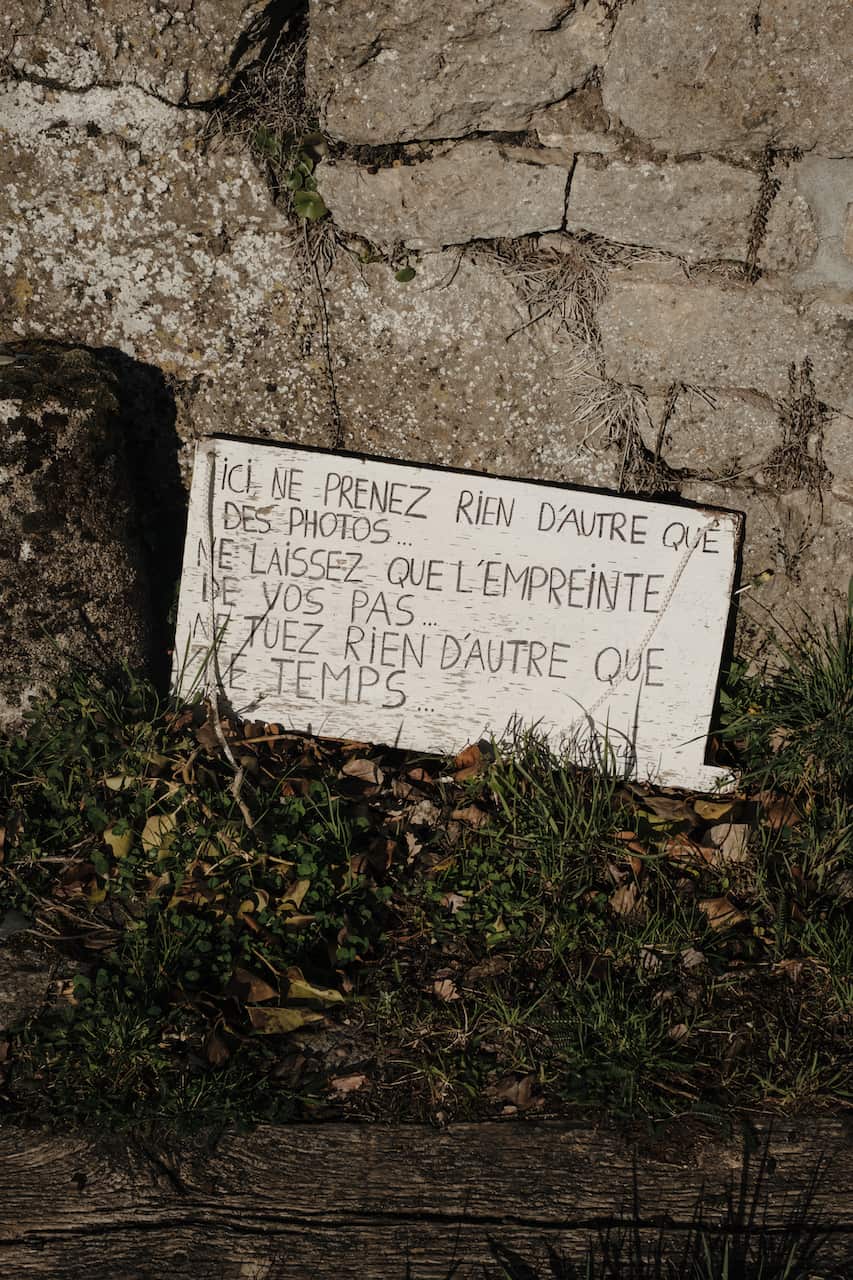 iCi NE PRENEZ RiEN D'AUTRE QUE
DES PHOTOS...
NE LAiSSEZ QUE L'EMPREiNTE
DE VOS PAS...
NE TUEZ RiEN D'AUTRE QUE
LE TEMPS...